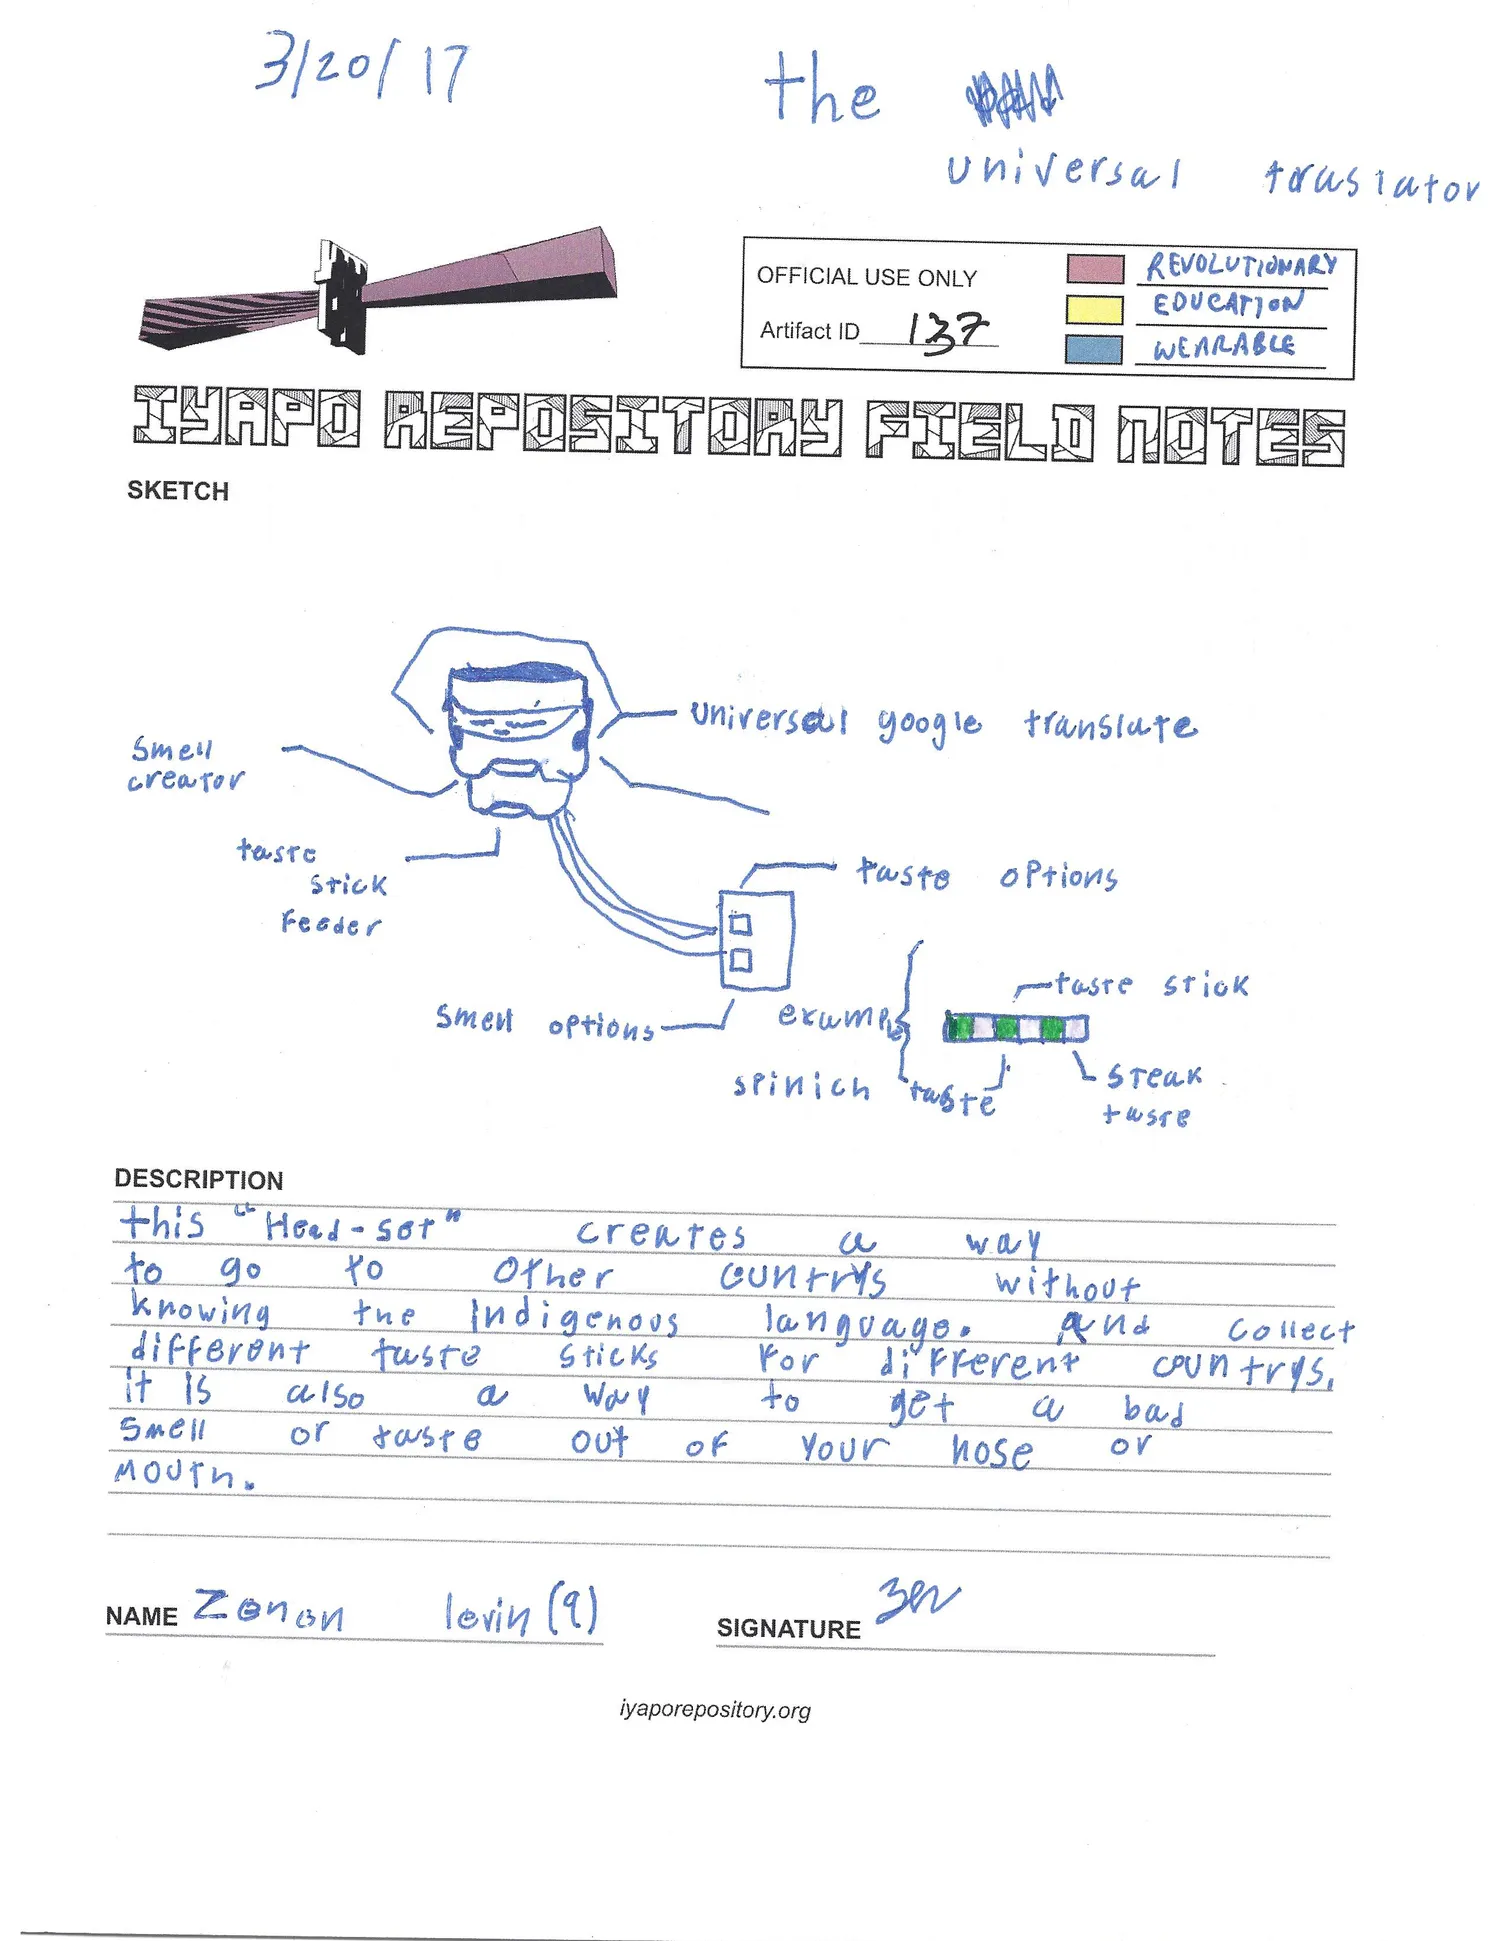 3/20/17
the
universal traslator
OFFICIAL USE ONLY
Artifact ID 137
REVOLUTIONARY
EDUCATION
WEARABLE
IYAPO REPOSITORY FIELD NOTES
SKETCH
universal google translate
smell
creator
taste
stick
feeder
taste options
smell options
example
taste stick
spinich taste
steak
taste
DESCRIPTION
this "Head-set" creates a way
to go to other countrys without
knowing the Indigenous language. And collect
different taste sticks for different countrys.
it is also a way to get a bad
smell or taste out of your nose or
mouth.
NAME Zenon levin (9)
SIGNATURE
iyaporepository.org